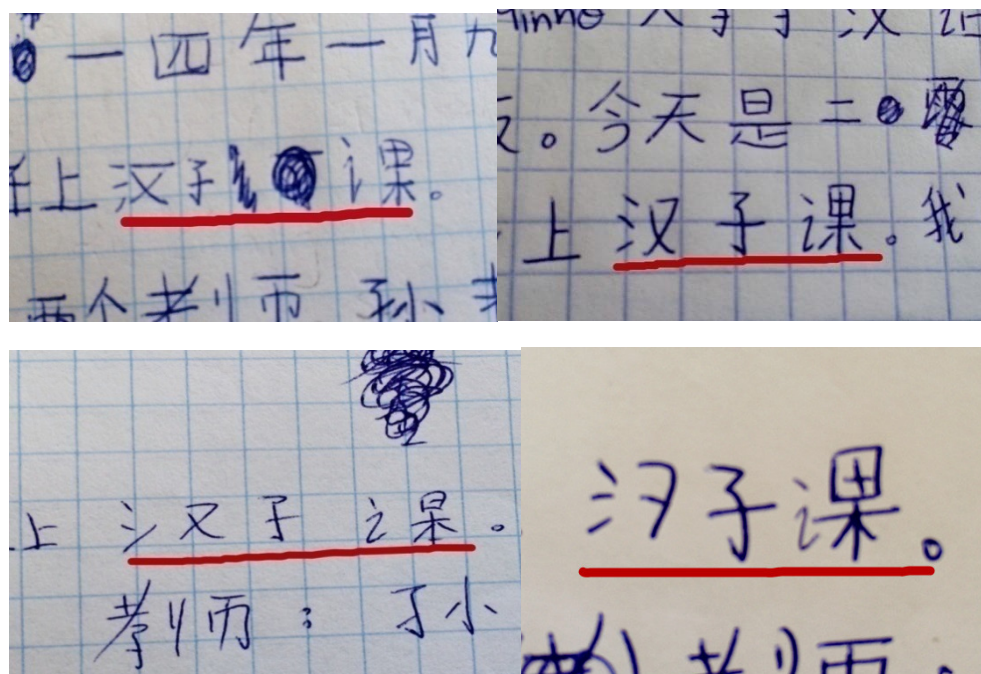 一四年一月九
上汉子课。
两个老师 孙
人子 汉
。今天是二
上汉子课。我
上 汉子 课。
老师：子小
汉子课。
老师：